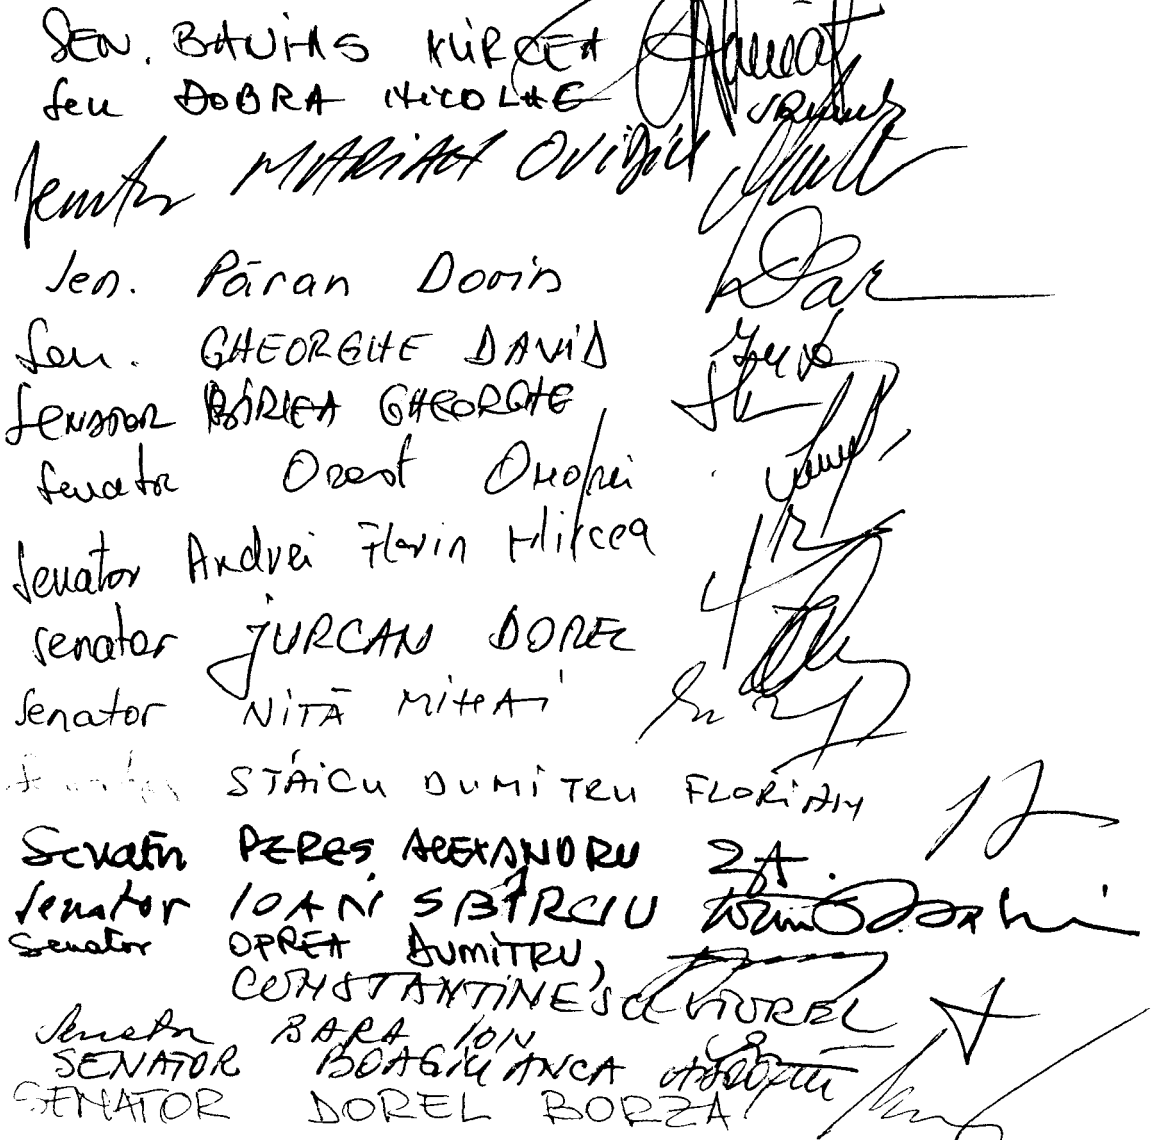 SEN. BANIAS MIRCEA
Sen DOBRA NICOLAE
Senator MARIAN OVIDIU
Sen. Păran Dorin
Sen. GHEORGHE DAVID
SENATOR BÎRLEA GHEORGHE
Senator Orest Onofrei
Senator Andrei Florin Mircea
senator JURCAN DOREL
Senator NITĂ MIHAI
STAICU DUMITRU FLORIAN
Senator PEREȘ ALEXANDRU
Senator IOAN SBÎRCIU
Senator OPREA DUMITRU,
CONSTANTINESCU VIOREL
Senator BARA ION
SENATOR BOAGIU ANCA
SENATOR DOREL BORZA